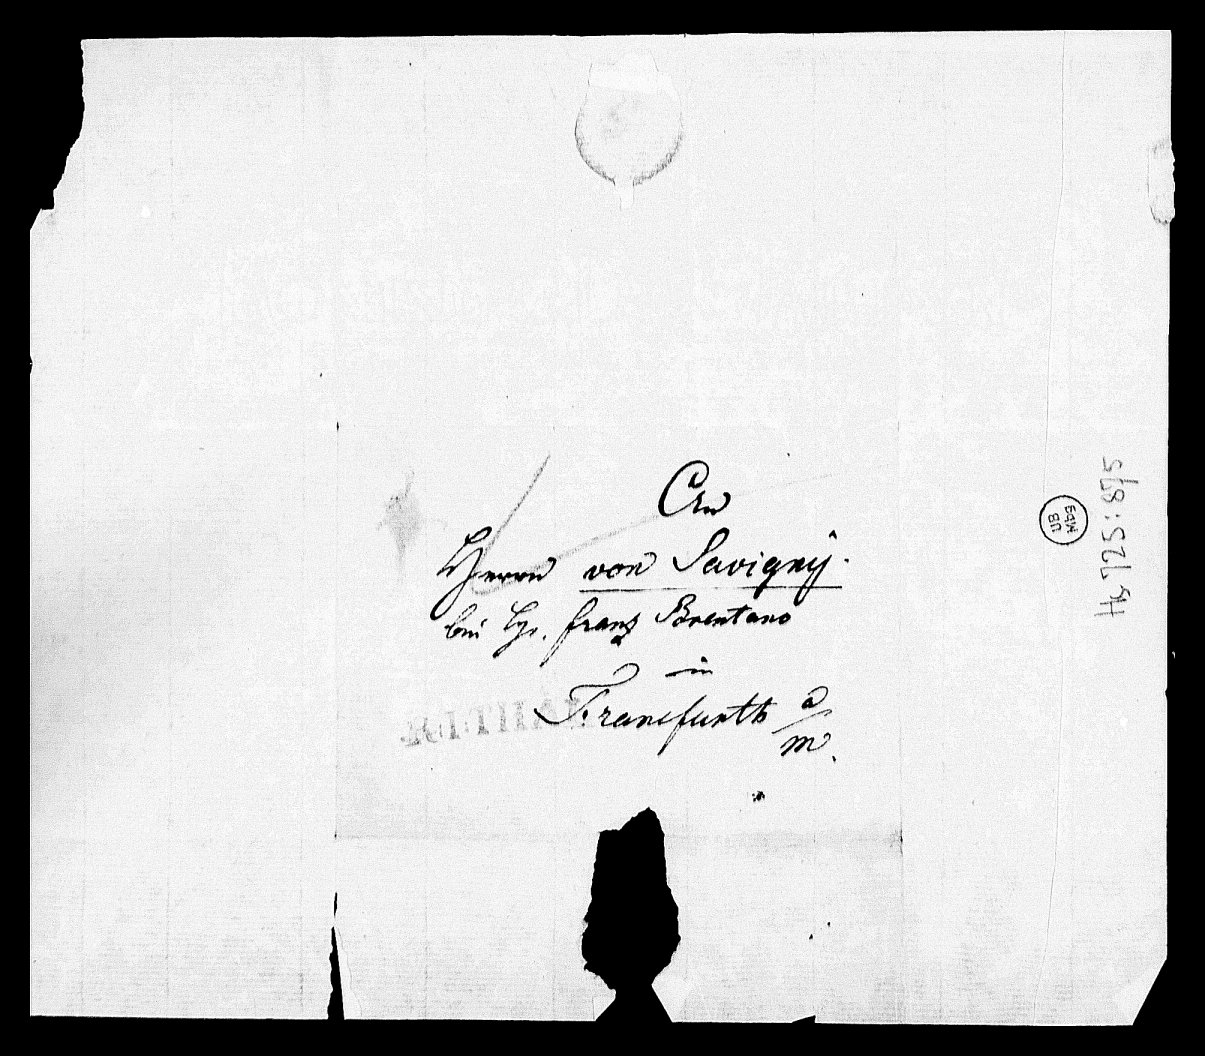 An
Herrn von Savigny.
bei Hr. Franz Brentano
in
Francfurth a/m.
UB
Mbg
Hs 725:875